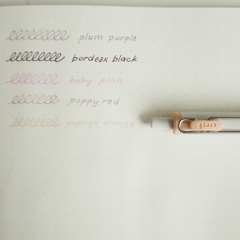 plum purple
bordeax black
baby pink
poppy red
orange